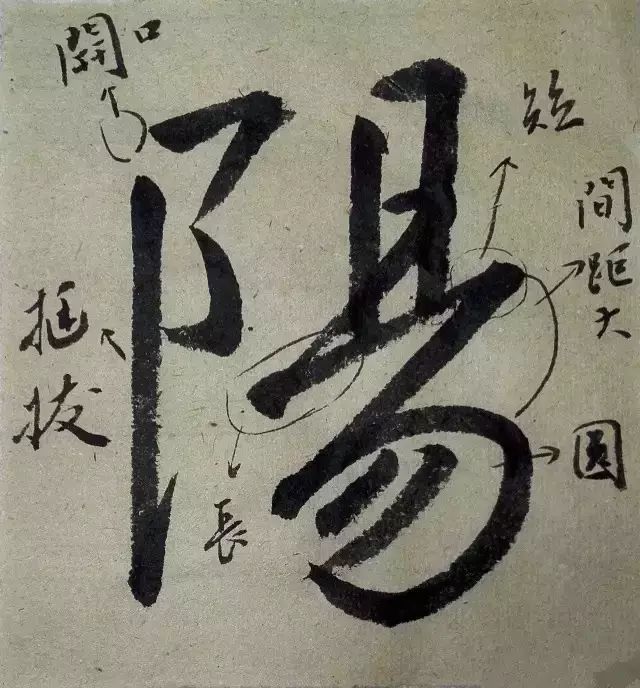 陽
開口
短
間距大
挺拔
長
圓